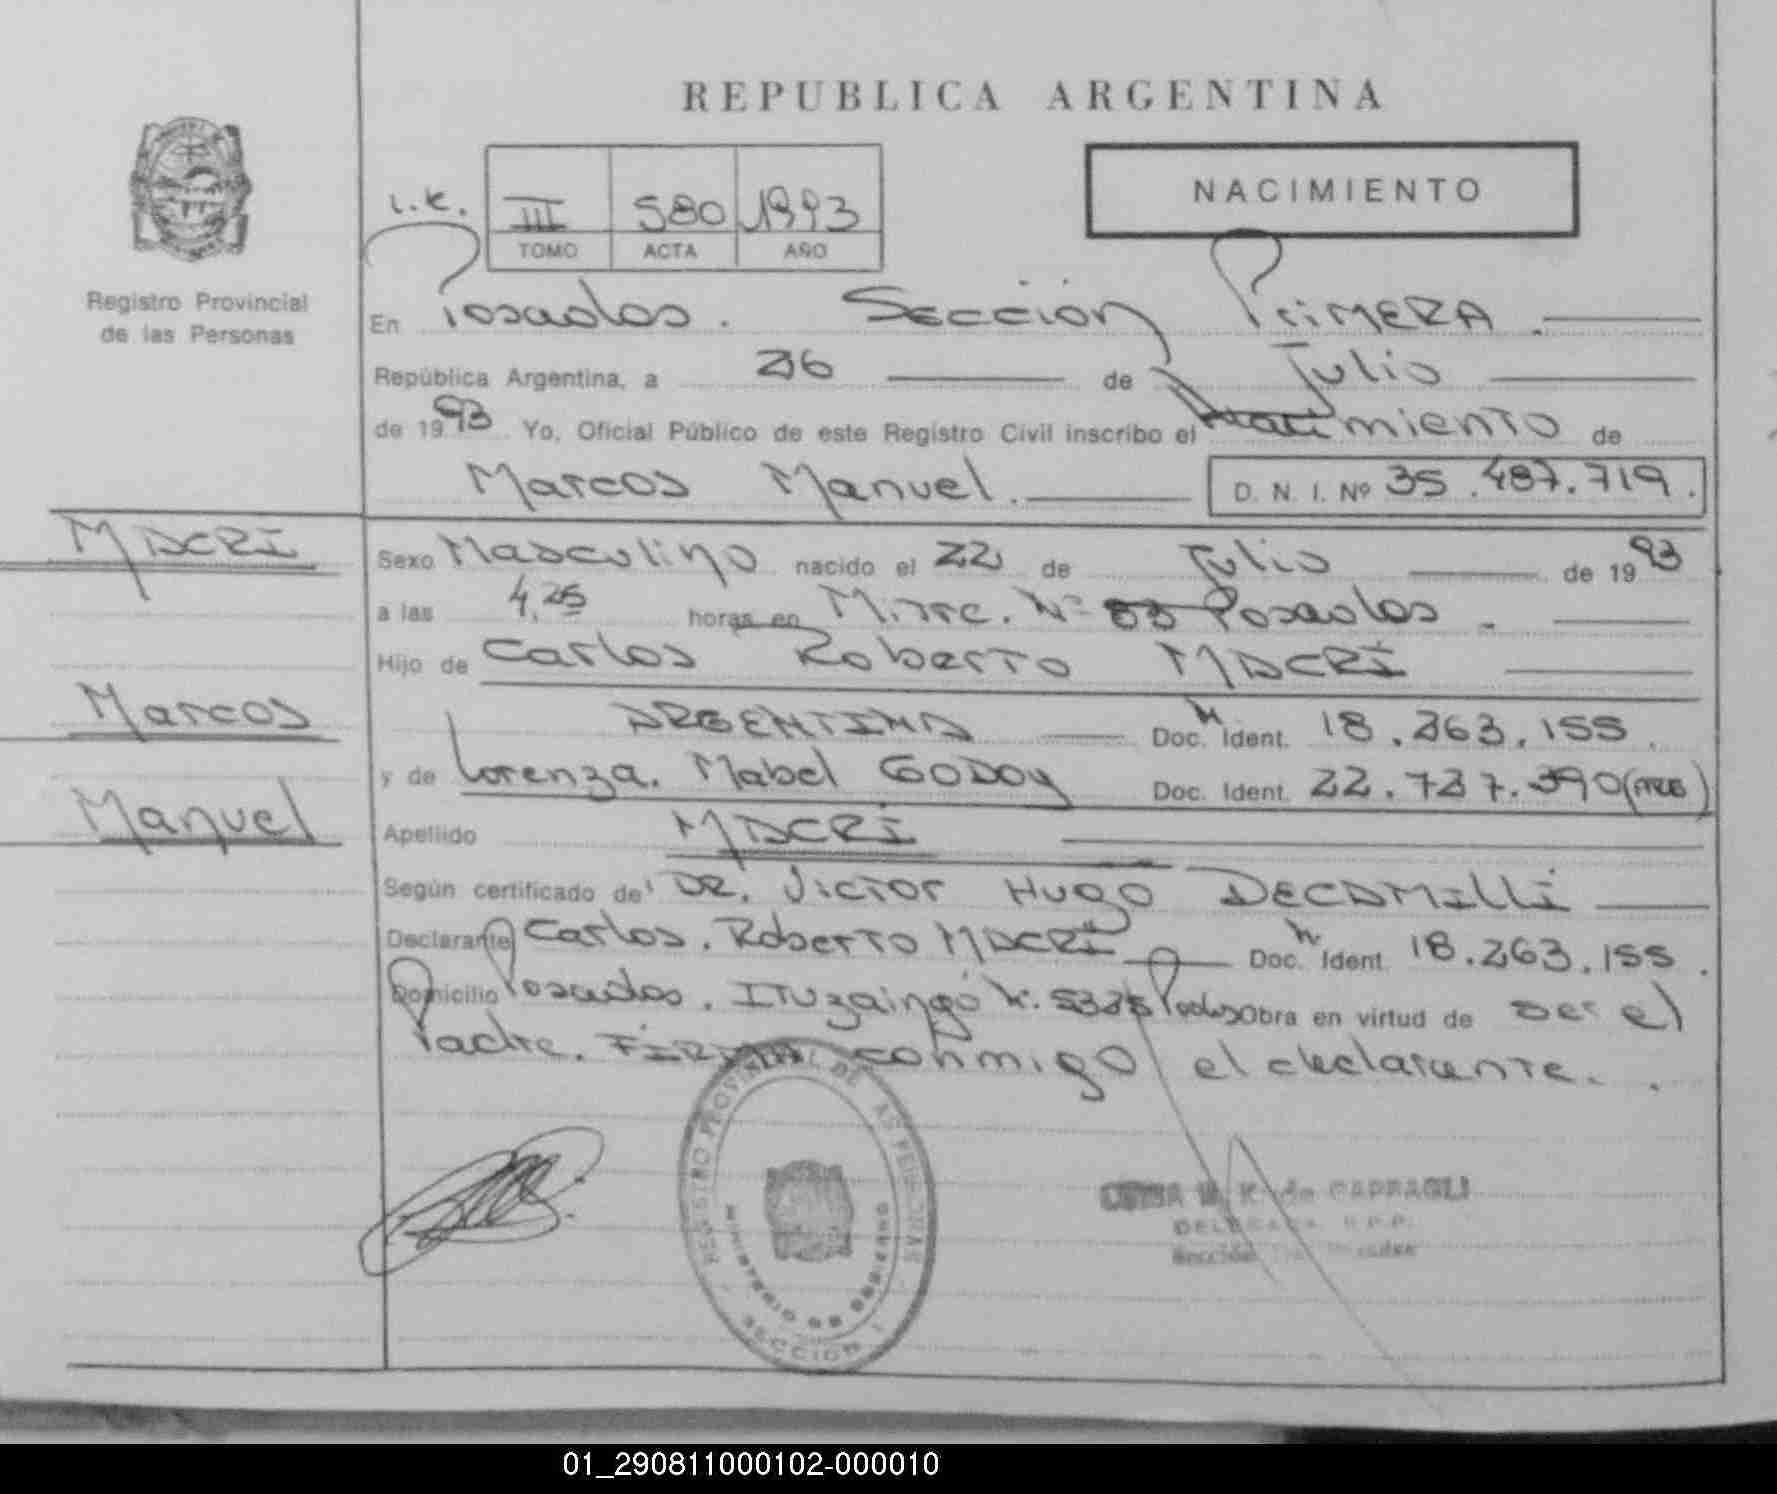 REPUBLICA ARGENTINA
NACIMIENTO
I.K.
III 580 1993
TOMO ACTA AÑO
Registro Provincial
de las Personas
En Posadas. Sección Primera.
República Argentina, a 26 de Julio
de 1993 Yo, Oficial Público de este Registro Civil inscribo el Nacimiento de
Marcos Manuel. D. N. I. Nº 35.487.719.
MACRI
Marcos
Manuel
Sexo Masculino nacido el 22 de Julio de 1993
a las 4,25 horas en Mitre. Nº Posadas
Hijo de Carlos Roberto MACRI
ARGENTINA Doc. Ident. 18.263.155.
y de Lorenza. Mabel GODOY Doc. Ident. 22.737.390
Apellido MACRI
Según certificado de DR. Victor Hugo DECAMILLI
Declarante Carlos. Roberto MACRI Doc. Ident. 18.263.155.
Domicilio Posadas. Ituzaingó Obra en virtud de ser el
Padre. FIRMA conmigo el declarante.
REGISTRO PROVINCIAL DE LAS PERSONAS
MINISTERIO DE GOBIERNO
SECCION 1
K. de CAPPAGLI
DELEGADA R.P.P.
Sección
01_290811000102-000010